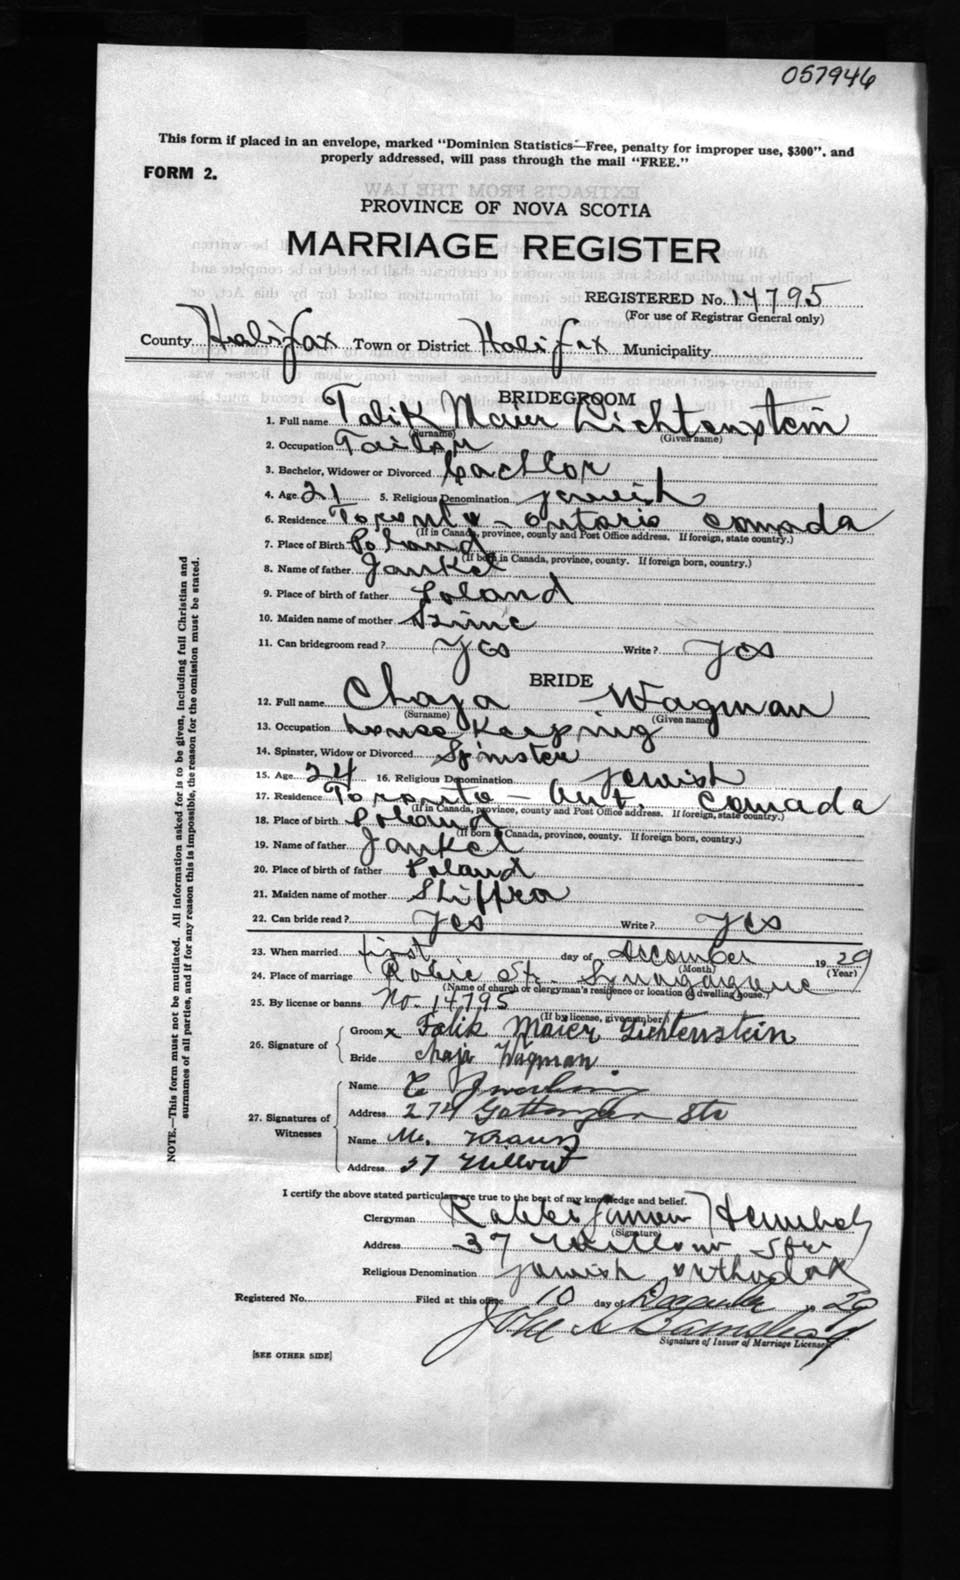 057946
This form if placed in an envelope, marked "Dominion Statistics—Free, penalty for improper use, $300", and
properly addressed, will pass through the mail "FREE."
FORM 2.
PROVINCE OF NOVA SCOTIA
MARRIAGE REGISTER
REGISTERED No. 14795
(For use of Registrar General only)
County Halifax Town or District Halifax Municipality
BRIDEGROOM
1. Full name Falik Maier Lichtenstein
(Surname) (Given name)
2. Occupation Tailor
3. Bachelor, Widower or Divorced bachlor
4. Age 21 5. Religious Denomination jewish
6. Residence Toronto - ontario comada
(If in Canada, province, county and Post Office address. If foreign, state country.)
7. Place of Birth Poland
(If born in Canada, province, county. If foreign born, country.)
8. Name of father Jankel
9. Place of birth of father Poland
10. Maiden name of mother
11. Can bridegroom read? yes Write? yes
BRIDE
12. Full name Chaja Wagman
(Surname) (Given name)
13. Occupation house keeping
14. Spinster, Widow or Divorced Spinster
15. Age 24 16. Religious Denomination jewish
17. Residence Toronto - Ont. comada
(If in Canada, province, county and Post Office address. If foreign, state country.)
18. Place of birth Poland
(If born in Canada, province, county. If foreign born, country.)
19. Name of father Jankel
20. Place of birth of father Poland
21. Maiden name of mother Shiffra
22. Can bride read? yes Write? yes
23. When married first day of december 1929
(Month) (Year)
24. Place of marriage Robie St. Synagogue
(Name of church or clergyman's residence or location of dwelling house.)
25. By license or banns No. 14795
(If by license, give number.)
26. Signature of
Groom x Falik Maier Lichtenstein
Bride Chaja Wagman
27. Signatures of Witnesses
Name E
Address 274 Gottingen Str
Name Mr. Kraus
Address 37 Willow
I certify the above stated particulars are true to the best of my knowledge and belief.
Clergyman Rabbi
(Signature)
Address 37 Willow Str
Religious Denomination Jewish orthodox
Registered No. Filed at this office 10 day of December 1929
Signature of Issuer of Marriage License
[SEE OTHER SIDE]
NOTE.—This form must not be mutilated. All information asked for is to be given, including full Christian and
surnames of all parties, and if for any reason this is impossible, the reason for the omission must be stated.